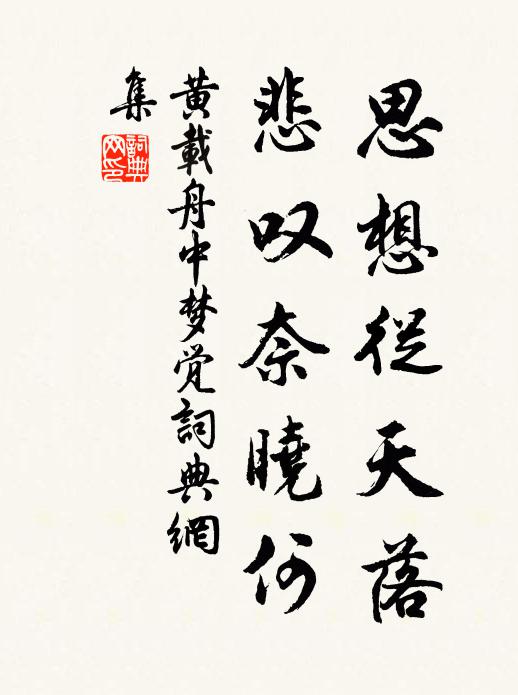 思想從天落
悲叹奈曉何
黄載舟中梦觉詞典網
集
詞典網印